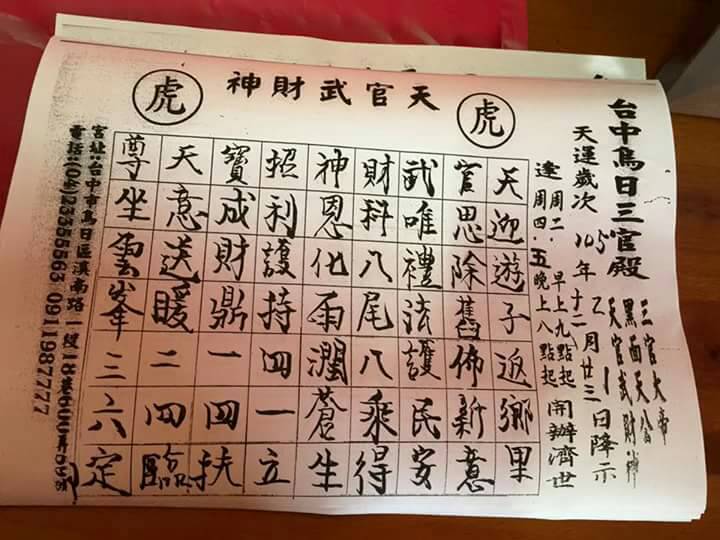 台中烏日三官殿
三官大帝
黑面天公
天官武財神
天運歲次105年十二月廿三日降示
逢周二.早上九點起
周四.五晚上八點起
開辦濟世
天官武財神
虎
虎
天迎遊子返鄉里
官思除舊佈新意
武唯禮法護民安
財科八尾八乘得
神恩化雨潤蒼生
招利護持四一立
寶成財鼎一四扶
天意送暖二四臨
尊坐雲峯三六定
宮址:台中市烏日區溪南路一
電話:(04)23355563 0911987777